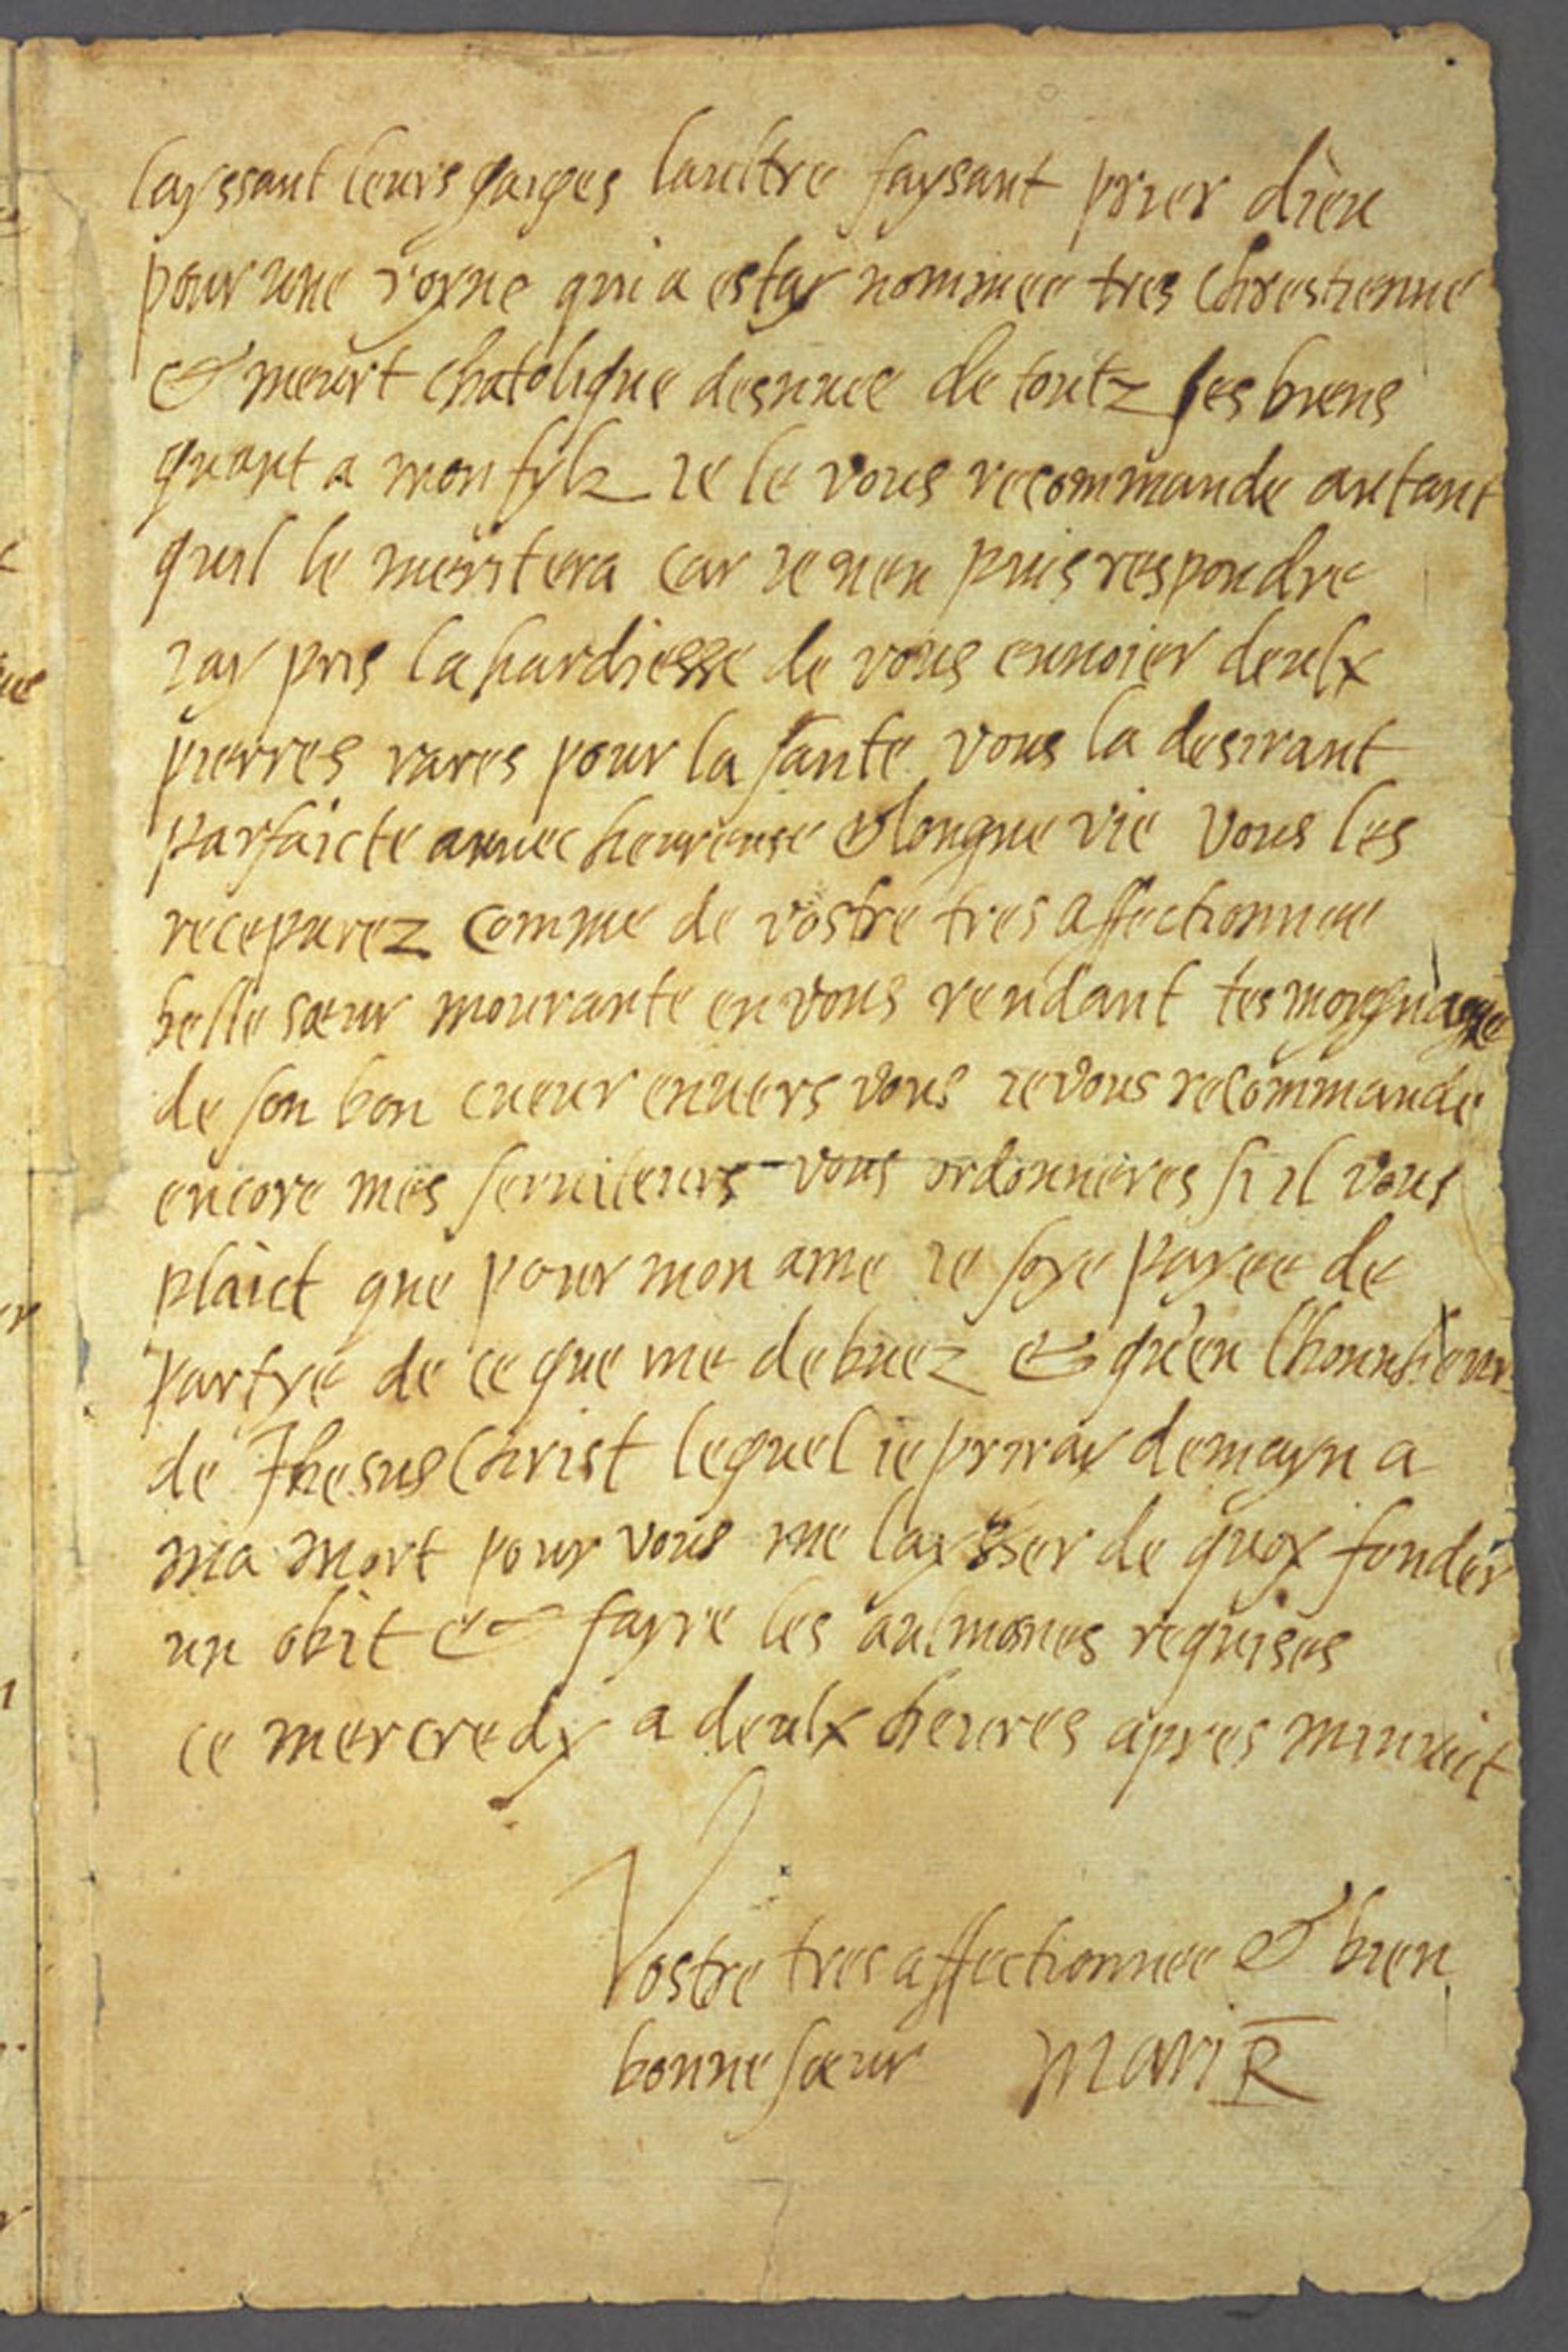 layssant leurs gaiges laultre faysant prier dieu
pour une royne qui a estay nommee tres chrestienne
& meurt chatolique desnuee de toutz ses biens
quant a mon fylz ie le vous recommande autant
quil le meritera car ie nen puis respondre
iay pris la hardiesse de vous enuoier deulx
pierres rares pour la sante vous la desirant
parfaicte auuec heureuse & longue vie vous les
receparez comme de vostre tres affectionnee
belle sœur mourante en vous rendant tesmoygnasge
de son bon cueur enuers vous ie vous recommande
encore mes seruiteurs vous ordonneres si il vous
plaict que pour mon ame ie soye payee de
partye de ce que me debuez & qu'en l'honnheur
de Jhesus Christ lequel ie priray demayn a
ma mort pour vous me laysser de quoy fonder
un obit & fayre les aulmones requises
ce mercredy a deulx heures apres minuict
Vostre tres affectionnee & bien
bonne sœur Mari R